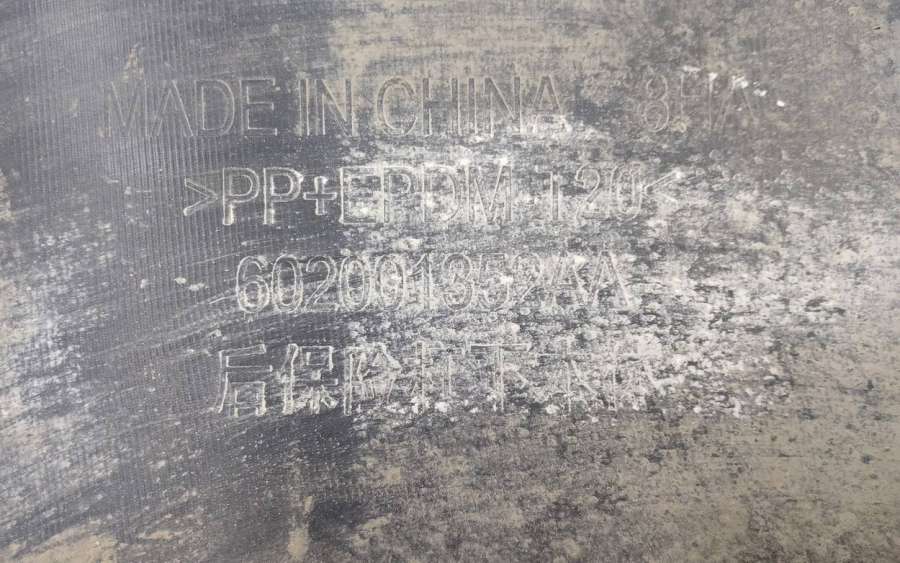 MADE IN CHINA
>PP+EPDM-T20<
602001352AA
后保险杠下本体